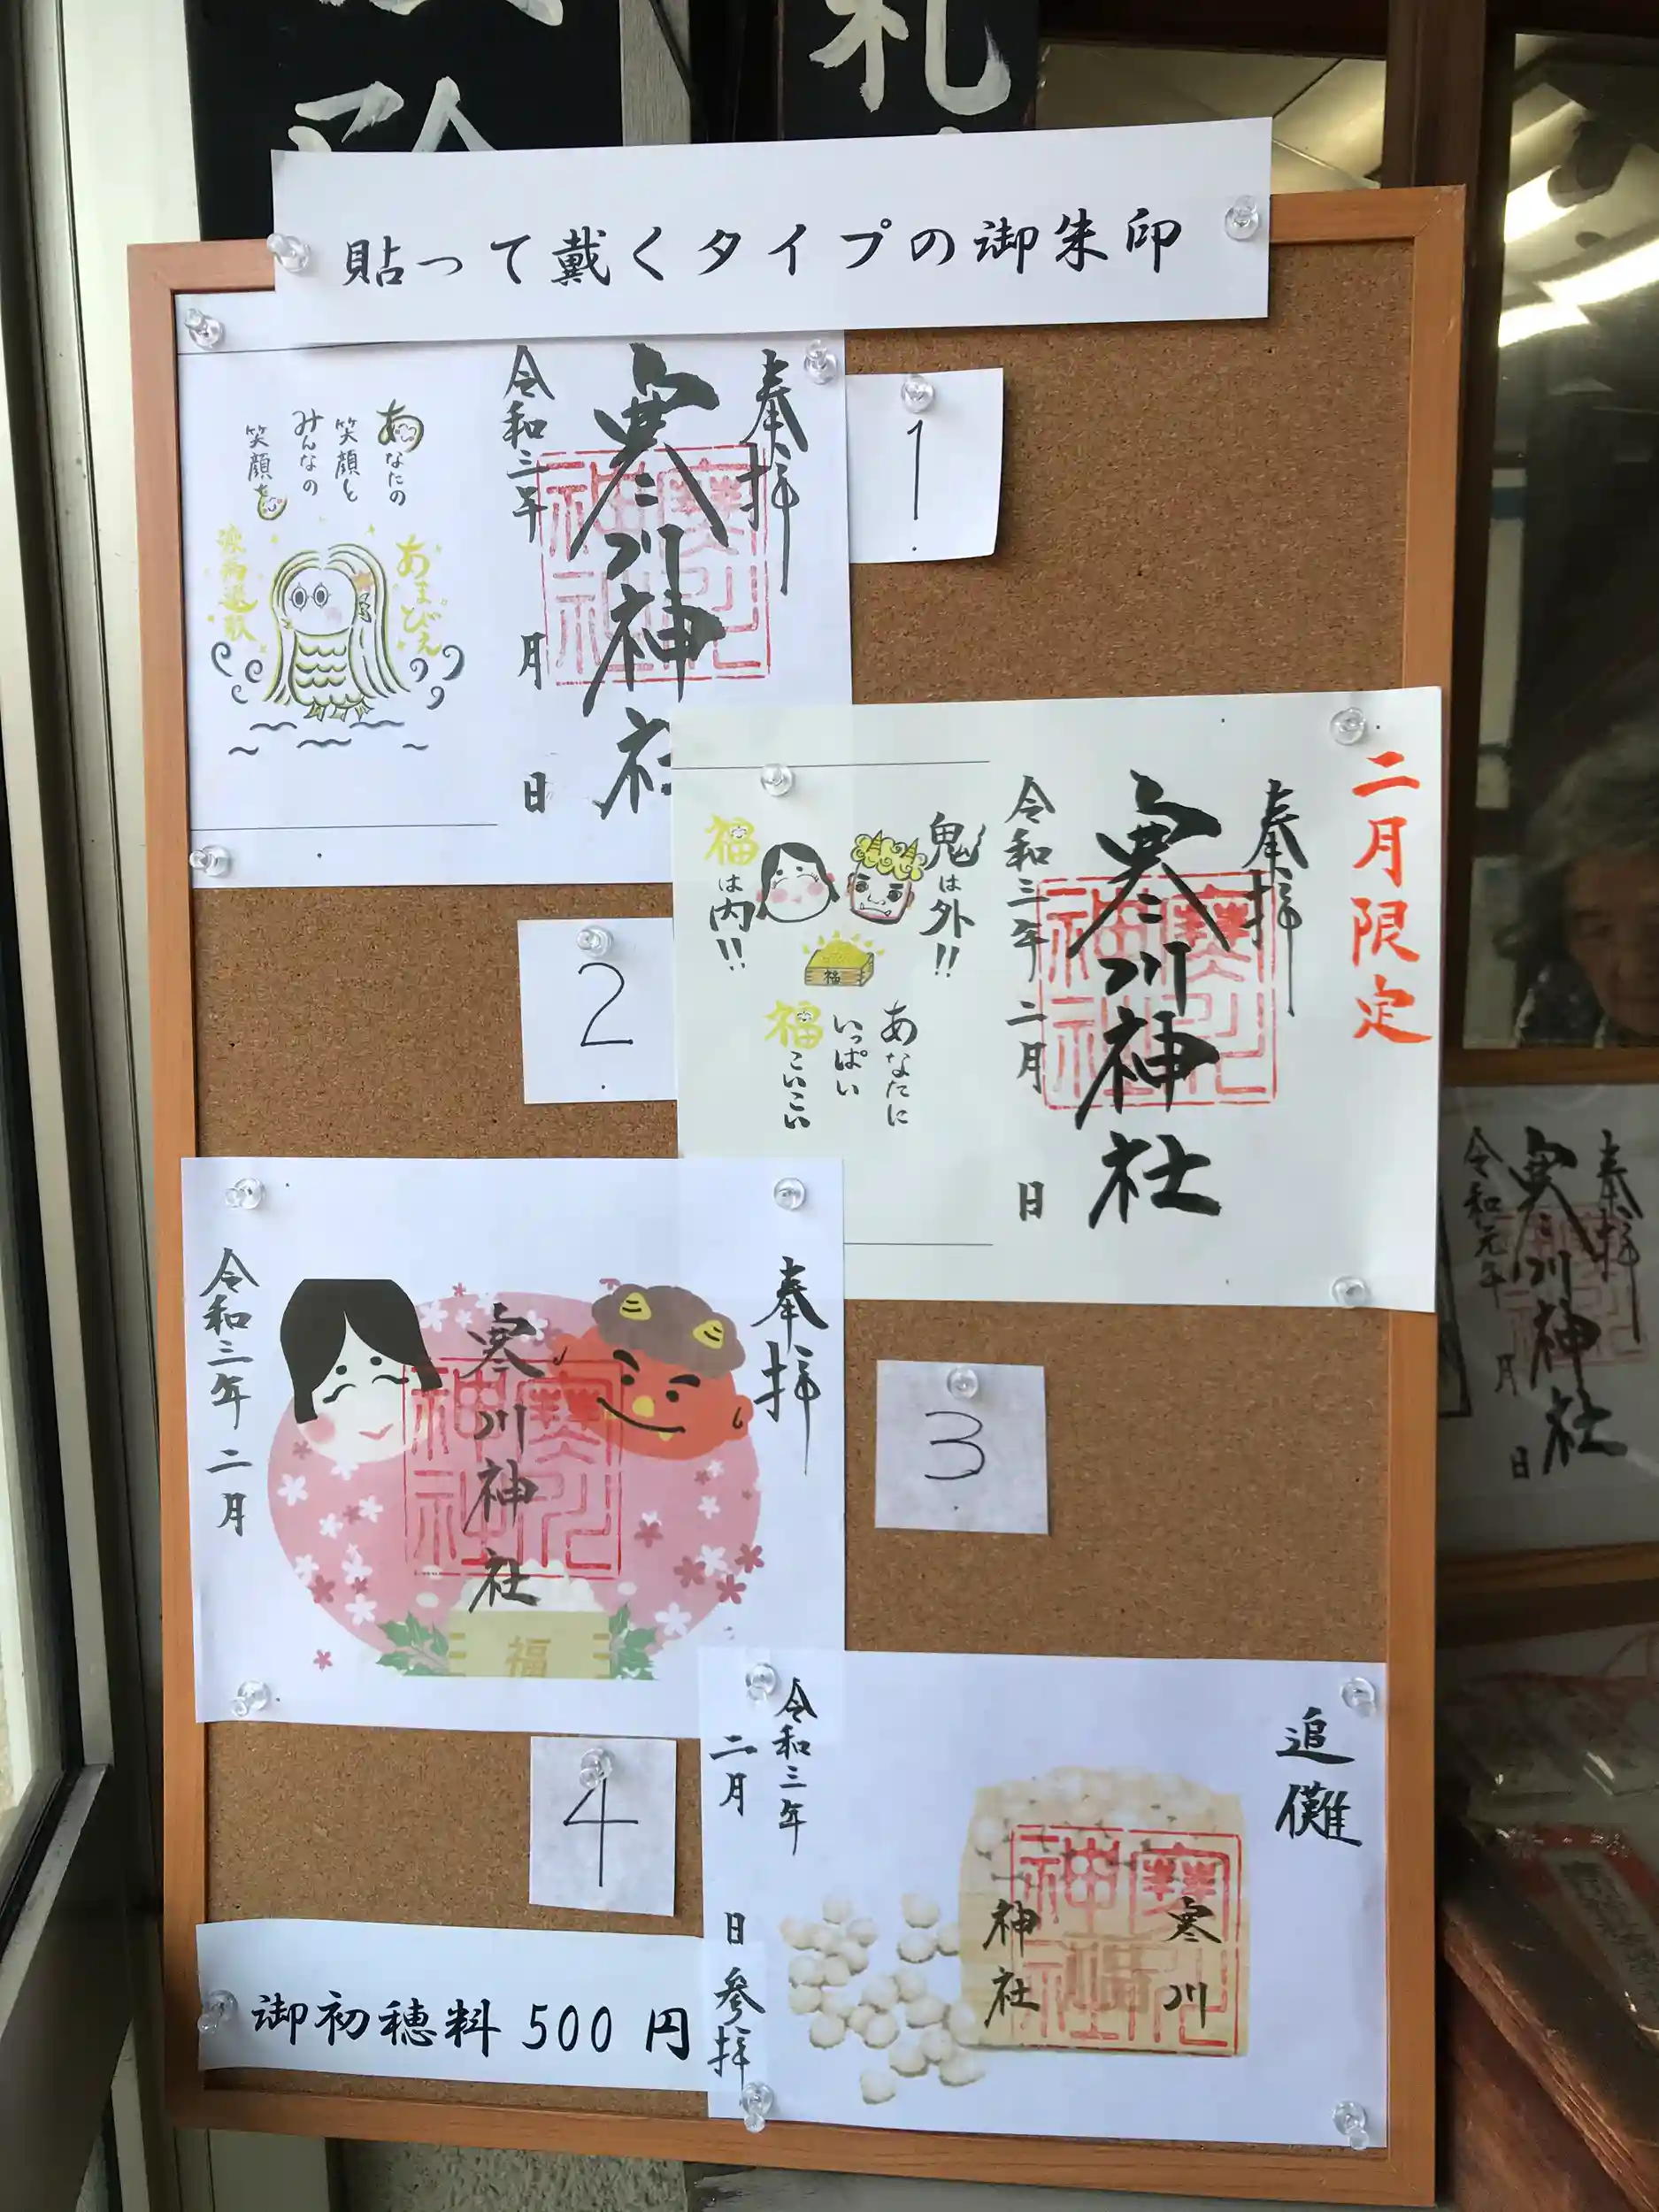 札
貼って戴くタイプの御朱印
奉拝
寒川神社
令和三年 月 日
あなたの
笑顔と
みんなの
笑顔を
あまびえ
疫病退散
1.
二月限定
奉拝
寒川神社
令和三年 二月 日
鬼は外!!
福は内!!
福
あなたに
いっぱい
福こいこい
2.
奉拝
寒川神社
令和三年 二月
福
3.
追儺
寒川
神社
令和三年
二月 日 参拝
4.
御初穂料 500 円
奉拝
寒川神社
令和元年 月 日